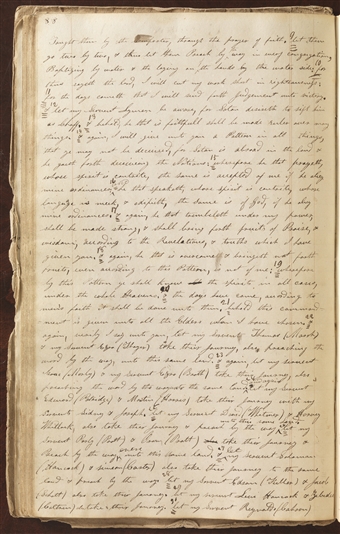 88
taught them by the Comforter, through the prayer of faith. & let them
go two by two, & thus let them Preach by way in every congregation,
Baptizing by water & the laying on of the hands by the water side; for
thus sayeth the Lord, I will cut my work short in righteousness;
for the days cometh that I will send forth Judgement unto victory
& let my servent Lyman be aware, for Satan desireth to sift him
as chaff, & behold, he that is faithfull shall be made ruler over many
things, & again, I will give unto you a Pattern in all things,
that ye may not be deceived, for Satan is abroad in the land &
he goeth forth deceiving the Nations; wherefore he that prayeth,
whose spirit is contrite, the same is accepted of me if he obey
mine ordinances. he that speaketh, whose spirit is contrite, whose
language is meek, & edifieth, the same is of God, if he obey
mine ordinances. & again, he that trembleth under my power,
shall be made strong, & shall bring forth fruits of Praise, &
wisdom, according to the Revelations, & truths which I have
given you. & again, he that is overcome & bringeth not forth
fruits, even according to this Pattern, is not of me; wherefore
by this Pattern ye shall know the spirits, in all cases,
under the whole Heavens, & the days have come, according to
mens faith it shall be done unto them, behold this command-
ment is given unto all the Elders whom I have chosen. &
again verily I say unto you, let my servent Thomas (Marsh)
& my servent Ezra (Thayer) take their journey, also, preaching the
word by the way, unto this same land. & again, let my servent
Isaac (Morly) & my servent Ezra (Booth) take their journey, also
preaching the word by the way unto the same land. & again let my servent
Edward (Patridge) & Martin (Harris) take their journey with my
servents Sidney & Joseph. let my servent David (Whitmer) & Harvey
Whitlock, also take their journey & preach by the way unto this same land. let my
servent Parly (Pratt) & Orson (Pratt) take their journey &
Preach by the way unto this same land. & let my servent Solomon
(Hancock) & Simeon (Carter) also take their journey to the same
land & preach by the way. let my servent Edson (Fuller) & Jacob
(Schott) also take their journey. let my servent Levi Hancock & Zebedee
(Coltrin) take their journey. let my servent Reynolds (Cahoon)